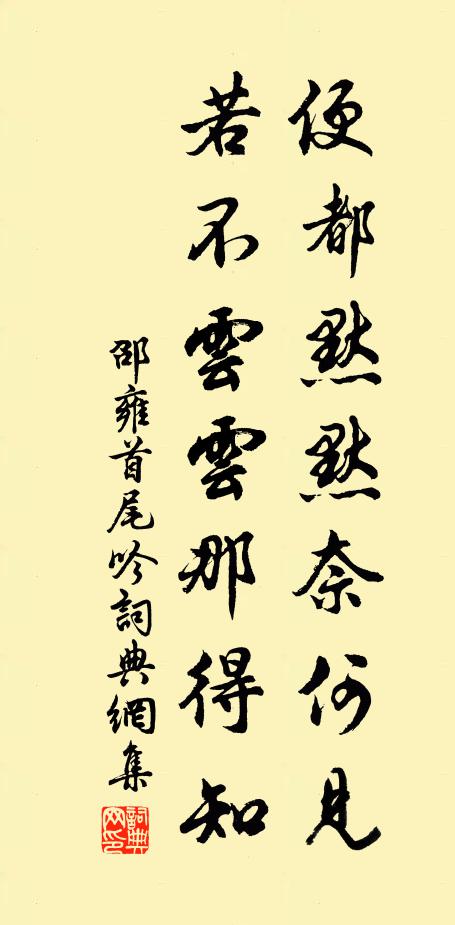 便都默默奈何見
若不雲雲那得知
邵雍首尾吟詞典網集
詞典
网印